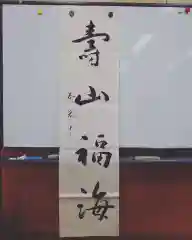 壽山福海